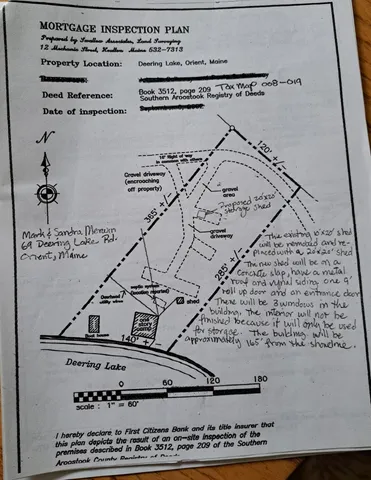 MORTGAGE INSPECTION PLAN
Prepared by Swallow Associates, Land Surveying
12 Mechanic Street, Houlton Maine 532-7313
Property Location: Deering Lake, Orient, Maine
Deed Reference: Book 3512, page 209 Tax Map 008-019
Southern Aroostook Registry of Deeds
Date of inspection:
N
14' Right of way
in common with others
120' +/-
Gravel driveway
(encroaching
off property)
gravel
area
365' +/-
Proposed 20'x25'
storage shed
gravel
driveway
Mark & Sandra Merwin
69 Deering Lake Rd.
Orient, Maine
285' +/-
The existing 10'x20' shed
will be removed and re-
placed with a 20'x25' shed
The new shed will be on a
concrete slap, have a metal
roof and vynal siding one 9'
roll up door and an entrance door
There will be 3 windows in the
building. The interior will not be
finished because it will only be used
for storage. The building will be
approximately 165' from the shoreline.
septic system
(location reported)
Overhead
shed
one
story
Boat house
140' +/-
Deering Lake
0 60 120 180
scale : 1" = 60'
I hereby declare to First Citizens Bank and its title insurer that
this plan depicts the result of an on-site inspection of the
premises described in Book 3512, page 209 of the Southern
Aroostook County Registry of Deeds